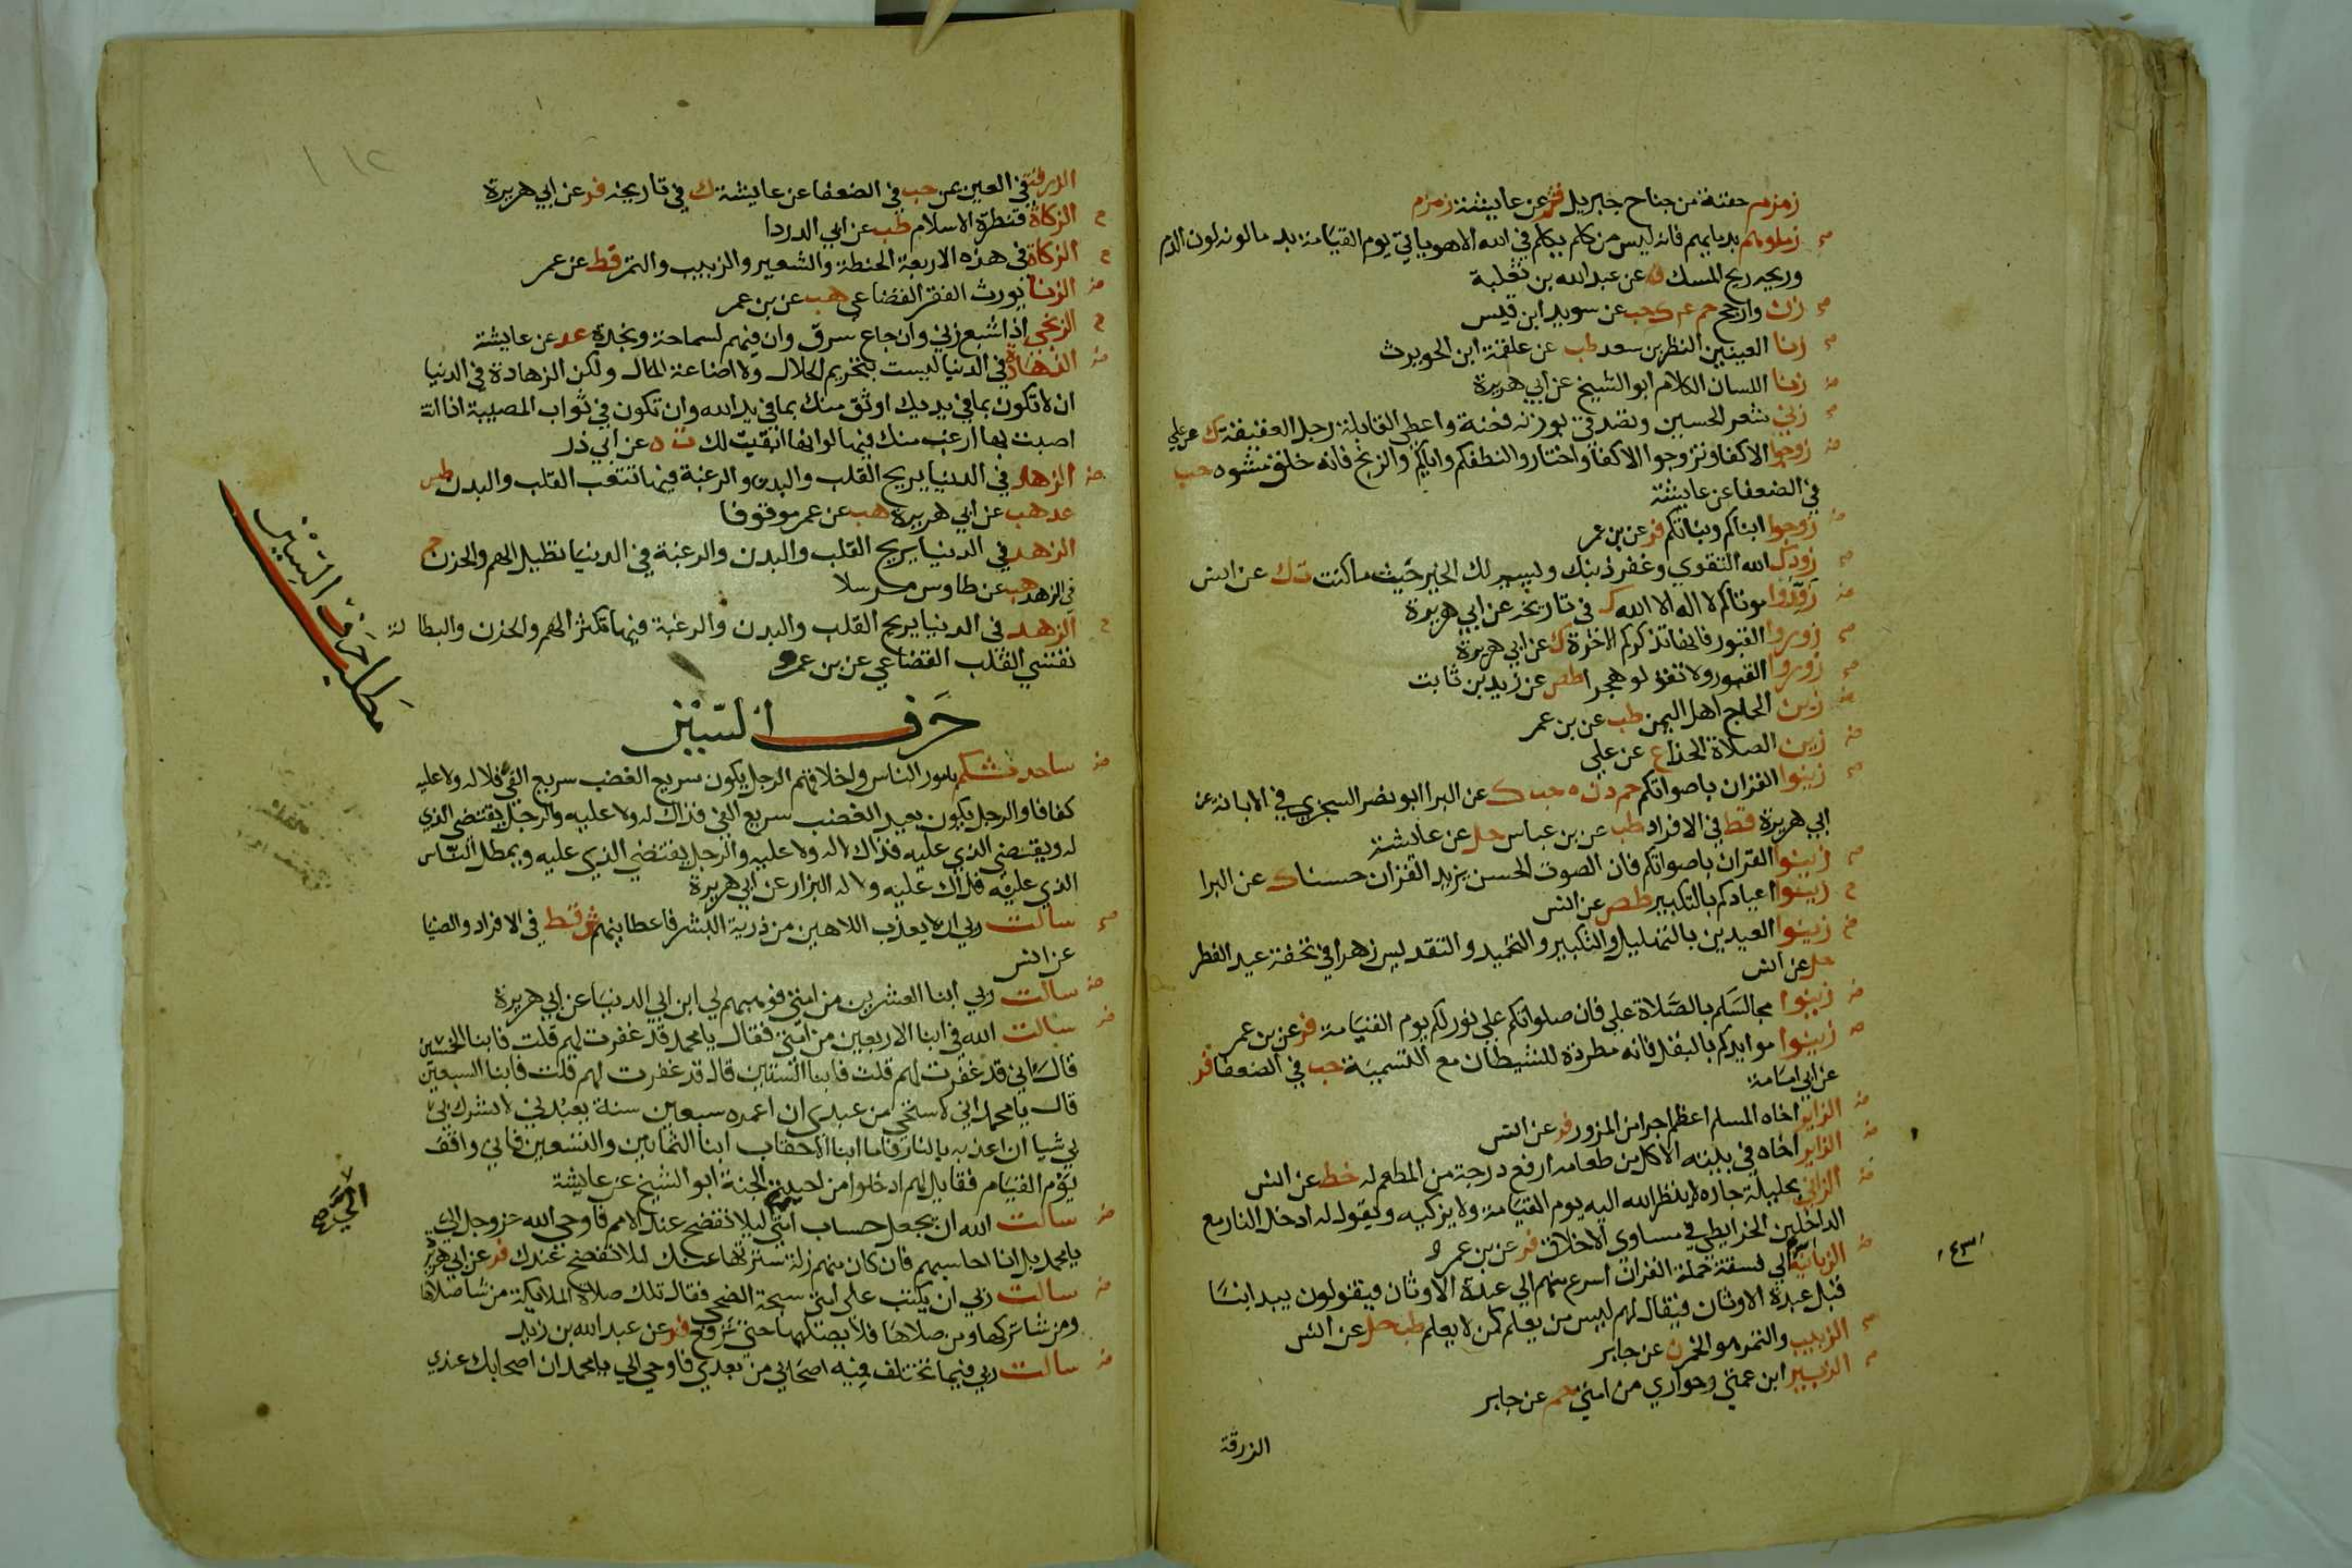 زمزم حفنة من جناح جبريل فر عن عايشة زمزم
زملوهم بدمايهم فانه ليس من كلم يكلم في الله الا هو ياتي يوم القيامة يدما لونه لون الدم
وريحه ريح المسك ن عن عبد الله بن ثعلبة
زن وارجح حم عه ك حب عن سويد ابن قيس
زنا العينين النظر بن سعد طب عن علقمة ابن الحويرث
زنا اللسان الكلام ابو الشيخ عن ابي هريرة
زني شعر الحسين وتصدقي بوزنه فضة واعطي القابلة رجل العقيقة ك عن علي
زوجوا الاكفا وتزوجوا الاكفا واختاروا لنطفكم واياكم والزنج فانه خلق مشوه حب
في الضعفا عن عايشة
زوجوا ابناكم وبناتكم فر عن بن عمر
زودك الله التقوي وغفر ذنبك ويسر لك الخير حيث ما كنت ت ك عن انس
زودوا موتاكم لا اله الا الله ك في تاريخه عن ابي هريرة
زوروا القبور فانها تذكركم الاخرة ك عن ابي هريرة
زوروا القبور ولا تقولوا هجرا طص عن زيد بن ثابت
زين الحاج اهل اليمن طب عن بن عمر
زين الصلاة الحذا ع عن علي
زينوا القران باصواتكم حم د ن ه حب ك عن البرا ابو نصر السجزي في الابانة عن
ابي هريرة قط في الافراد طب عن بن عباس حل عن عايشة
زينوا القران باصواتكم فان الصوت الحسن يزيد القران حسنا ك عن البرا
زينوا اعيادكم بالتكبير طص عن انس
زينوا العيدين بالتهليل والتكبير والتحميد والتقديس زاهر في تحفة عيد الفطر
حل عن انس
زينوا مجالسكم بالصلاة علي فان صلواتكم علي نور لكم يوم القيامة فر عن بن عمر
زينوا موايدكم بالبقل فانه مطردة للشيطان مع التسمية حب في الضعفا فر
عن ابي امامة
الزاير اخاه المسلم اعظم اجرا من المزور فر عن انس
الزاير اخاه في بيته الاكل من طعامه ارفع درجة من المطعم له خط عن انس
الزاني بحليلة جاره لا ينظر الله اليه يوم القيامة ولا يزكيه ويقول له ادخل النار مع
الداخلين الخرايطي في مساوي الاخلاق فر عن بن عمرو
الزبانية الي فسقة حملة القران اسرع منهم الي عبدة الاوثان فيقولون يبدا بنا
قبل عبدة الاوثان فيقال لهم ليس من يعلم كمن لا يعلم طب حل عن انس
الزبيب والتمر هو الخمر ن عن جابر
الزبير ابن عمتي وحواري من امتي حم عن جابر
الزرقة
الزرقة في العين يمن حب في الضعفا عن عايشة ك في تاريخه فر عن ابي هريرة
الزكاة قنطرة الاسلام طب عن ابي الدردا
الزكاة في هذه الاربعة الحنطة والشعير والزبيب والتمر قط عن عمر
الزنا يورث الفقر القضاعي هب عن بن عمر
الزنجي اذا شبع زني وان جاع سرق وان فيهم لسماحة ونجدة عد عن عايشة
الزهادة في الدنيا ليست بتحريم الحلال ولا اضاعة المال ولكن الزهادة في الدنيا
ان لا تكون بما في يديك اوثق منك بما في يد الله وان تكون في ثواب المصيبة اذا انت
اصبت بها ارغب منك فيها لو انها ابقيت لك ت ه عن ابي ذر
الزهد في الدنيا يريح القلب والبدن والرغبة فيها تتعب القلب والبدن طس
عد هب عن ابي هريرة هب عن عمر موقوفا
الزهد في الدنيا يريح القلب والبدن والرغبة في الدنيا تطيل الهم والحزن حم
في الزهد هب عن طاوس مرسلا
الزهد في الدنيا يريح القلب والبدن والرغبة فيها تكثر الهم والحزن والبطالة
تقسي القلب القضاعي عن بن عمرو
مطلب حرف السين
حرف السين
ساحدثكم بامور الناس واخلاقهم الرجل يكون سريع الغضب سريع الفي فلا له ولا عليه
كفافا والرجل يكون بعيد الغضب سريع الفي فذاك له ولا عليه والرجل يقتضي الذي
له ويقضي الذي عليه فذاك لا له ولا عليه والرجل يقتضي الذي عليه ويمطل الناس
الذي عليه فذاك عليه ولا له البزار عن ابي هريرة
سالت ربي ان لا يعذب اللاهين من ذرية البشر فاعطانيهم ش قط في الافراد والضيا
عن انس
سالت ربي ابنا العشرين من امتي فوهبهم لي ابن ابي الدنيا عن ابي هريرة
سالت الله في ابنا الاربعين من امتي فقال يا محمد قد غفرت لهم قلت فابنا الخمسين
قال اني قد غفرت لهم قلت فابنا الستين قال قد غفرت لهم قلت فابنا السبعين
قال يا محمد اني لاستحي من عبدي ان اعمره سبعين سنة يعبدني لا يشرك بي
بي شيا ان اعذبه بالنار فاما ابنا الاحقاب ابنا الثمانين والتسعين فاني واقف
يوم القيام فقايل لهم ادخلوا من احببتم الجنة ابو الشيخ عن عايشة
سالت الله ان يجعل حساب امتي الي ليلا تفضح عند الامم فاوحي الله عز وجل الي
يا محمد بل انا احاسبهم فان كان منهم زلة سترتها عنك ليلا تفضح عندك فر عن ابي هريرة
سالت ربي ان يكتب علي امتي سبحة الضحي فقال تلك صلاة الملايكة من شا صلاها
ومن شا تركها ومن صلاها فلا يصليها حتي ترتفع فر عن عبد الله بن زيد
سالت ربي فيما تختلف فيه اصحابي من بعدي فاوحي الي يا محمد ان اصحابك عندي